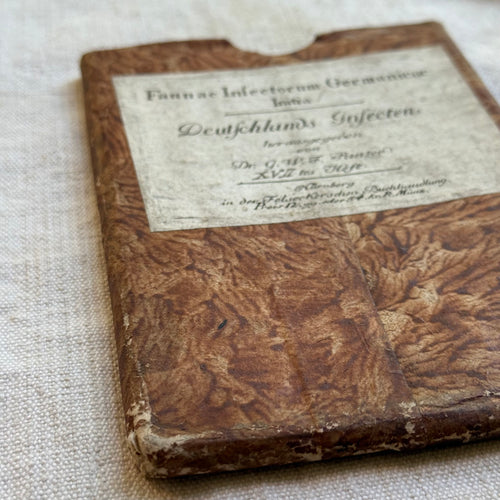 Faunae Insectorum Germanicae
Initia
Deutschlands Insecten
herausgegeben
von
Dr. G. W. F. Panzer
XVII tes Heft
Nürnberg
in der Felseckerschen Buchhandlung